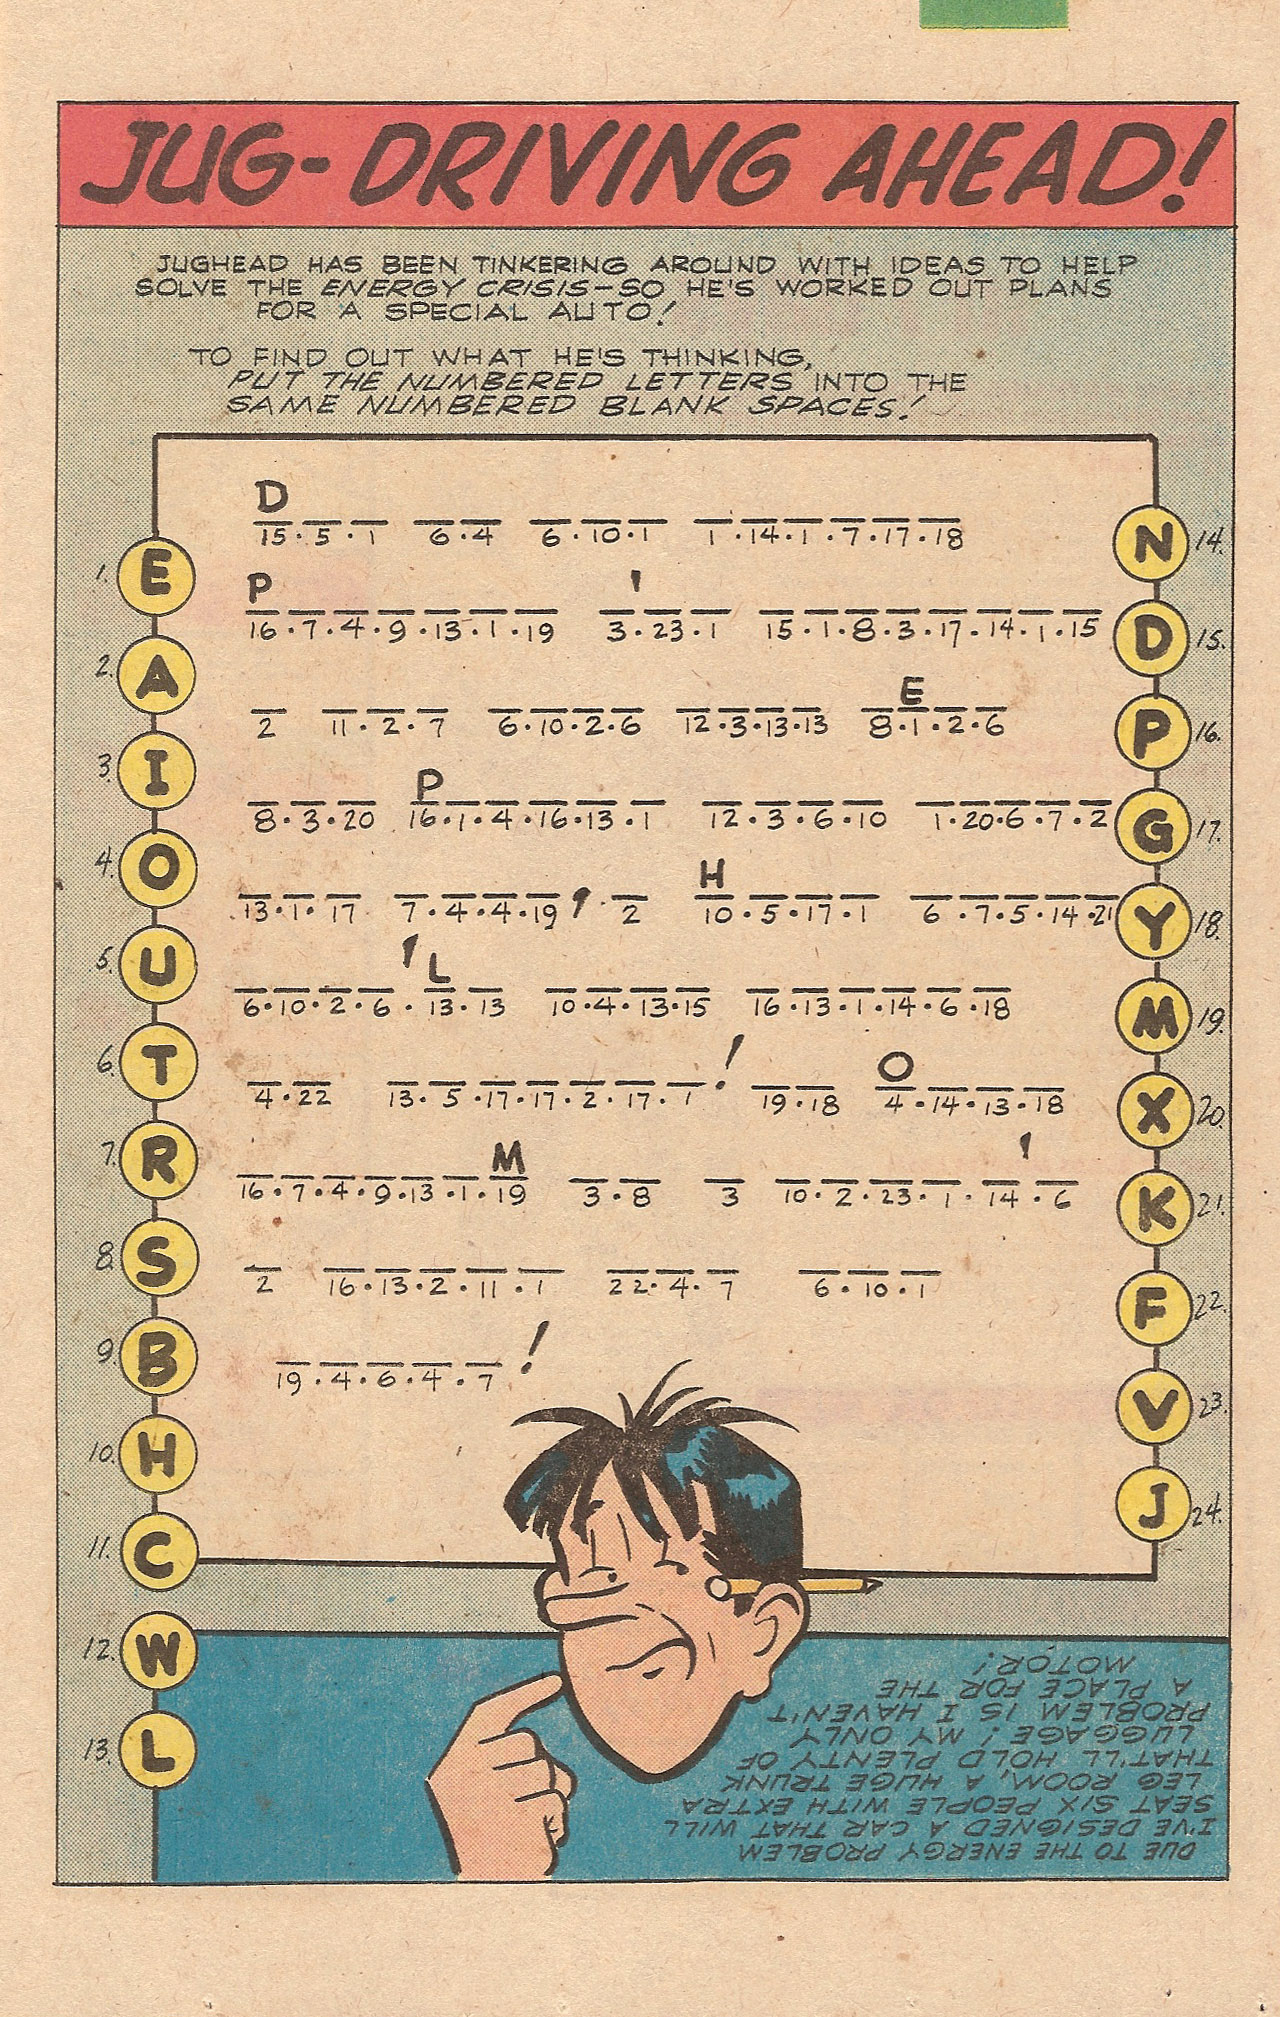 JUG-DRIVING AHEAD!
JUGHEAD HAS BEEN TINKERING AROUND WITH IDEAS TO HELP
SOLVE THE ENERGY CRISIS-SO HE'S WORKED OUT PLANS
FOR A SPECIAL AUTO!
TO FIND OUT WHAT HE'S THINKING,
PUT THE NUMBERED LETTERS INTO THE
SAME NUMBERED BLANK SPACES!
D
15.5.1 6.4 6.10.1 1.14.1.7.17.18
P '
16.7.4.9.13.1.19 3.23.1 15.1.8.3.17.14.1.15
E
2 11.2.7 6.10.2.6 12.3.13.13 8.1.2.6
P
8.3.20 16.1.4.16.13.1 12.3.6.10 1.20.6.7.2
H
13.1.17 7.4.4.19, 2 10.5.17.1 6.7.5.14.21
' L
6.10.2.6.13.13 10.4.13.15 16.13.1.14.6.18
O
4.22 13.5.17.17.2.17.1! 19.18 4.14.13.18
M '
16.7.4.9.13.1.19 3.8 3 10.2.23.1.14.6
2 16.13.2.11.1 22.4.7 6.10.1
19.4.6.4.7!
1. E
2. A
3. I
4. O
5. U
6. T
7. R
8. S
9. B
10. H
11. C
12. W
13. L
N 14.
D 15.
P 16.
G 17.
Y 18.
M 19.
X 20.
K 21.
F 22.
V 23.
J 24.
DUE TO THE ENERGY PROBLEM
I'VE DESIGNED A CAR THAT WILL
SEAT SIX PEOPLE WITH EXTRA
LEG ROOM, A HUGE TRUNK
THAT'LL HOLD PLENTY OF
LUGGAGE! MY ONLY
PROBLEM IS I HAVEN'T
A PLACE FOR THE
MOTOR!